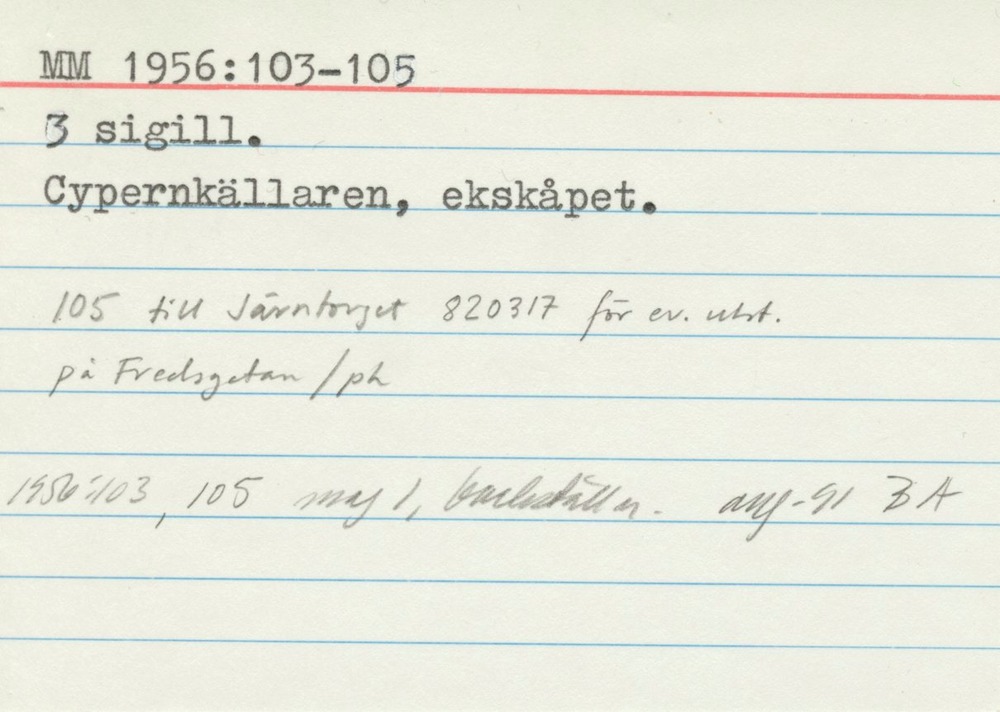 MM 1956:103-105
3 sigill.
Cypernkällaren, ekskåpet.
105 till Järntorget 820317 för ev. utst.
på Fredsgatan /ph
1956:103, 105 mag 1, aug-91 BA